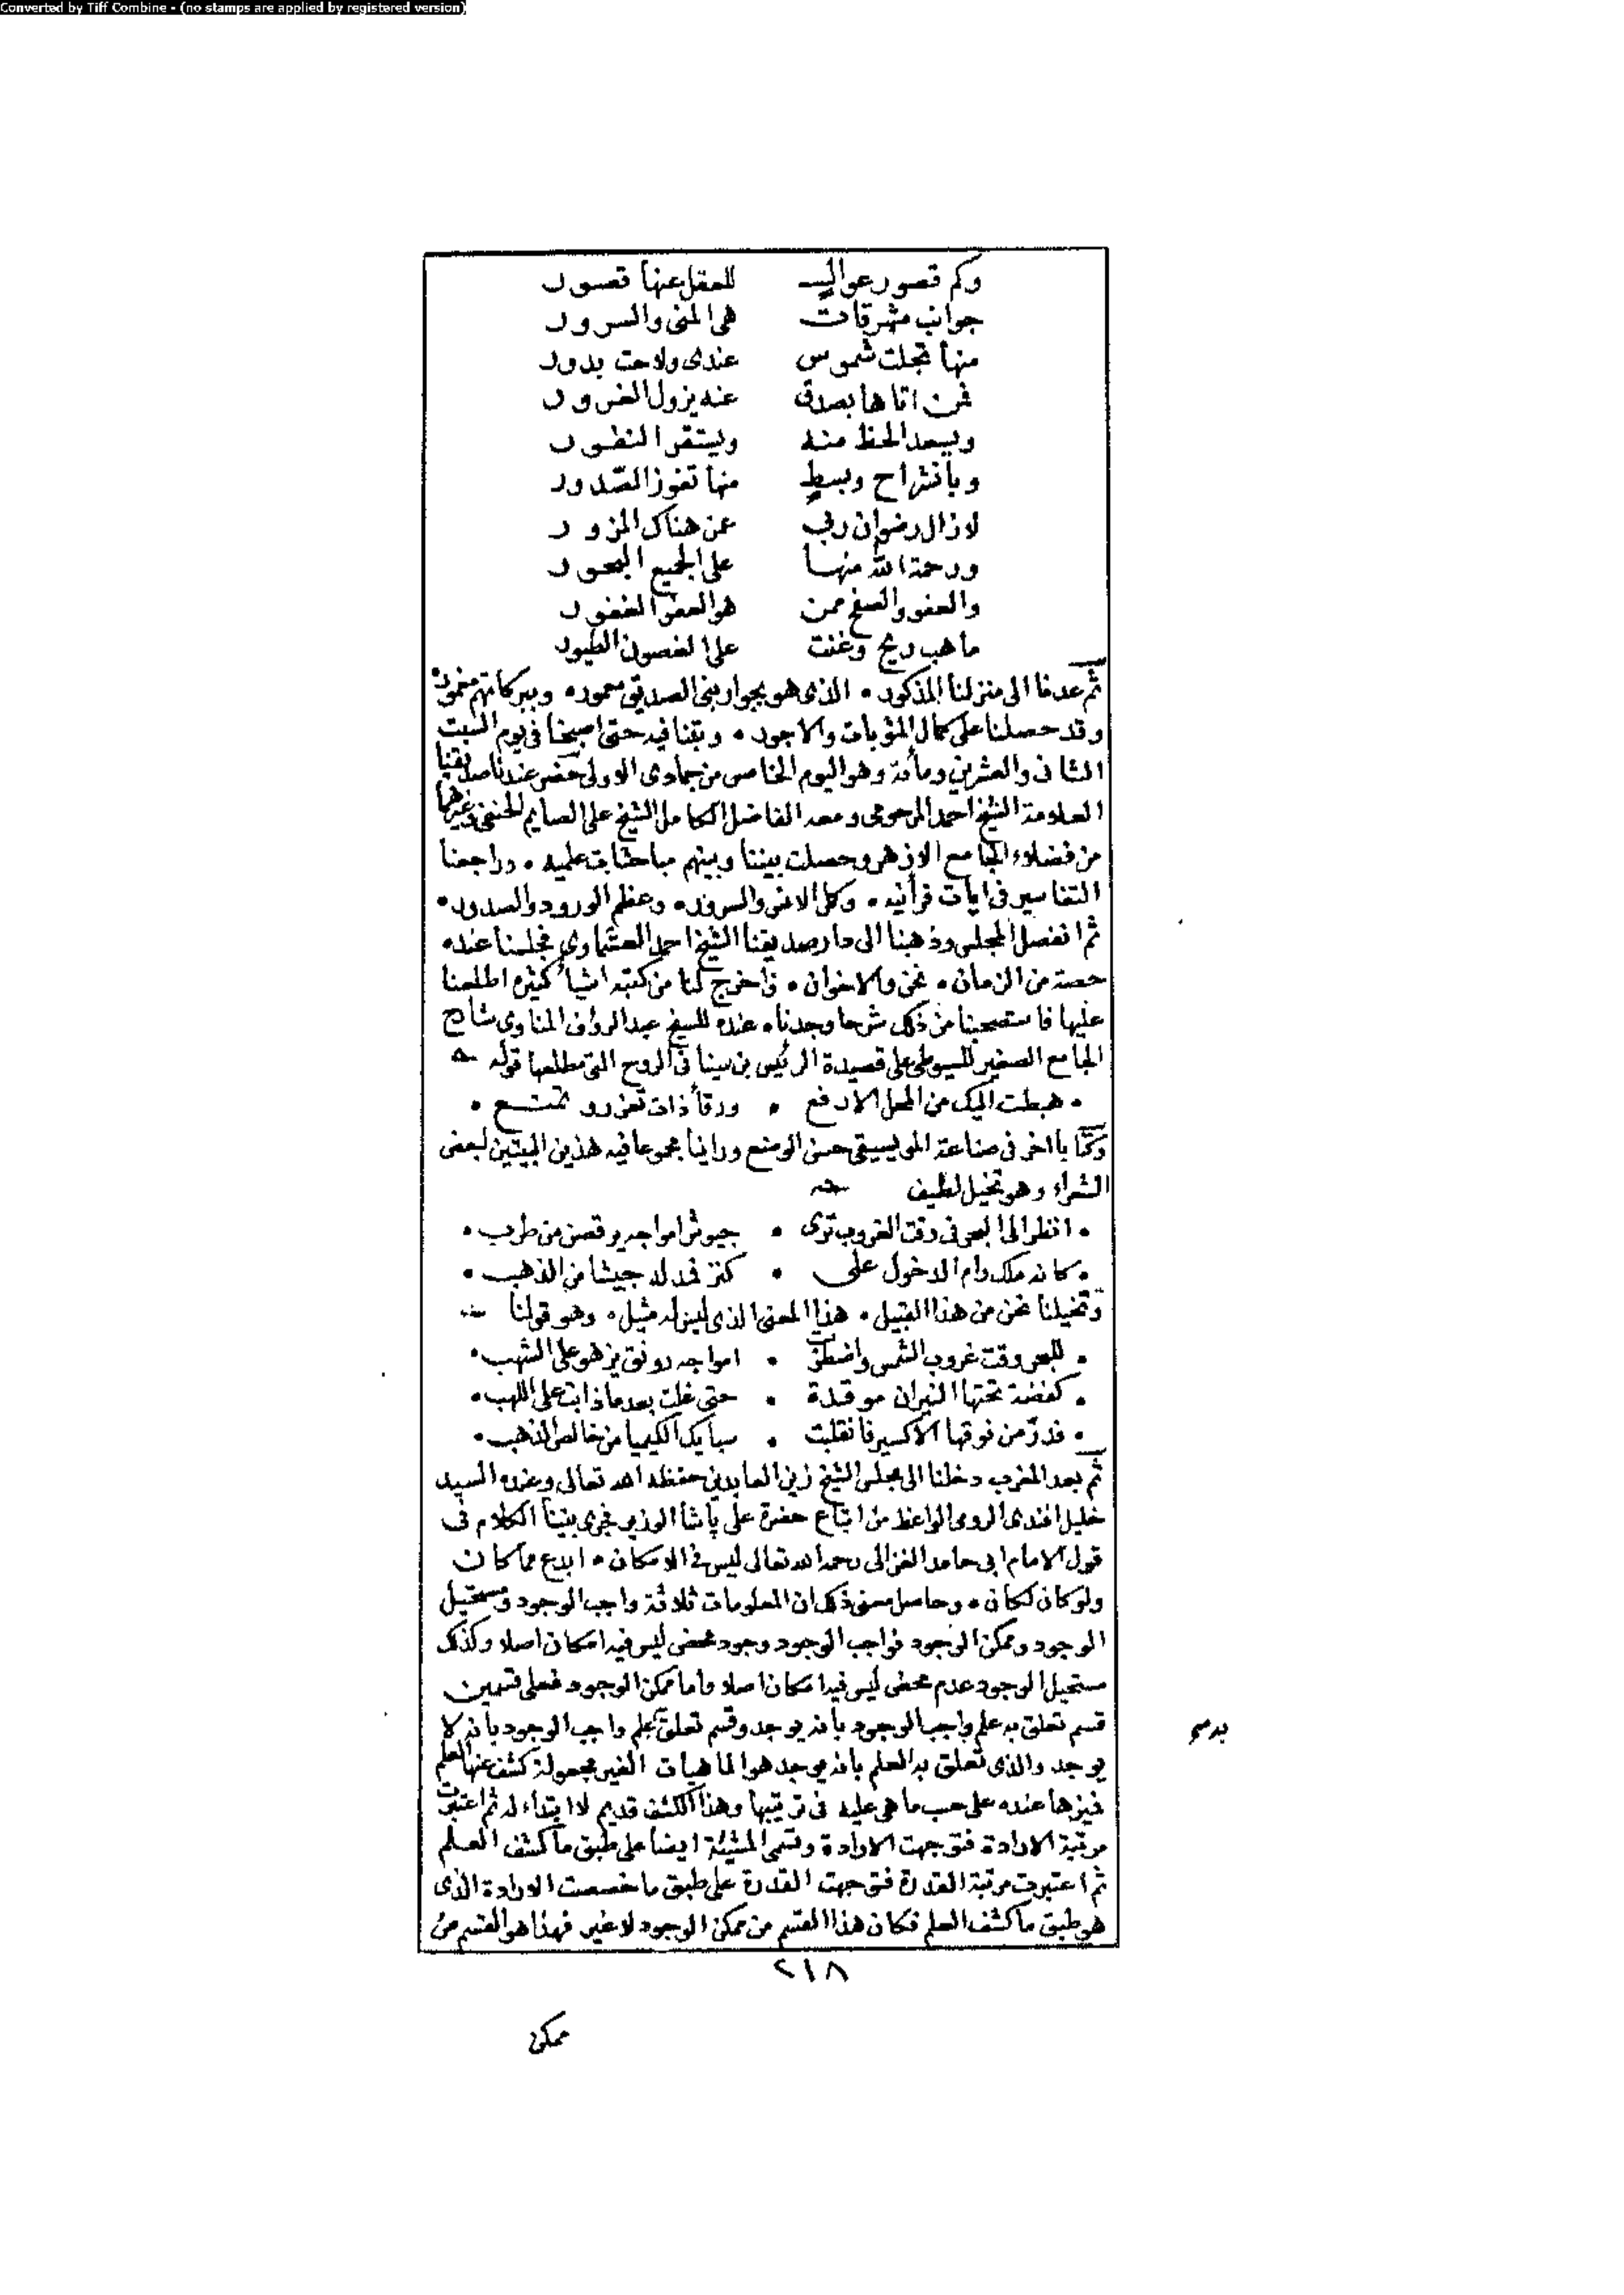 Converted by Tiff Combine - (no stamps are applied by registered version)
وكم قصور عوالٍ للعقل عنها قصور
جوانب مشرقات هي المنى والسرور
منها تجلت شموس عندى ولاحت بدور
فمن اتاها بصدق عنه يزول الغرور
ويسعد الحظ منه ويستقر النفور
وبانشراح وبسطٍ منها تفوز الصّدور
لازال رضوان ربي عن هناك المزور
ورحمة الله منها على الجميع البحور
والعفو والصفح ممن هو العفو الغفور
ما هب ريح وغنت على الغصون الطيور
ثم عدنا الى منزلنا المذكور • الذى هو بجوار بنى الصديق معمور • وببركاتهم مغمور
وقد حصلنا على كمال المثوبات والاجور • وبتنا فيه حتى اصبحنا فى يوم السبت
الثانى والعشرين ومائة وهو اليوم الخامس من جمادى الاولى حضر عندنا صديقنا
العلامة الشيخ احمد المرحومى ومعه الفاضل الكامل الشيخ على الصايم الحنفى وغيرهما
من فضلاء الجامع الازهر وحصلت بيننا وبينهم مباحثات علميه • وراجعنا
التفاسير فى ايات قرآنيه • وكمل الانس والسرور • وعظم الورود والصدور •
ثم انفصل المجلس وذهبنا الى دار صديقنا الشيخ احمد العشماوى فجلسنا عنده
حصة من الزمان • نحن والاخوان • فاخرج لنا من كتبه اشيأ كثيره اطلعنا
عليها فاستصحبنا من ذلك شرحا وجدناه عنده للشيخ عبد الرؤف المناوى شارح
الجامع الصغير للسيوطى على قصيدة الرئيس بن سينا فى الروح التى مطلعها قوله
• هبطت اليك من المحل الارفع • ورقأ ذات تعزز وتمنع •
وكتابا اخر فى صناعة الموسيقى حسن الوضع وراينا مجموعا فيه هذين البيتين لبعض
الشعراء وهو تخيل لطيف
• انظر الى البحر فى وقت الغروب ترى • جيوش امواجه يرقصن من طرب •
• كانه ملك رام الدخول على • كنز فمد له جيشا من الذهب •
وتخيلنا نحن من هذا القبيل • هذا المعنى الذى ليس له مثيل • وهو قولنا
• للبحر وقت غروب الشمس واضطرفت • امواجه رونق يزهو على الشهب •
• كفضة تحتها النيران موقدة • حتى غلت بعدما ذابت على اللهب •
• فذرّ من فوقها الاكسير فانقلبت • سبايك الكيميا من خالص الذهب •
ثم بعد المغرب دخلنا الى مجلس الشيخ زين العابدين حفظه الله تعالى وعنده السيد
خليل افندى الرومى الواعظ من اتباع حضرة على باشا الوزير فجرى بيننا الكلام فى
قول الامام ابى حامد الغزالى رحمه الله تعالى ليس فى الامكان • ابدع مما كان
ولو كان لكان • وحاصل معنى ذلك ان المعلومات ثلاثة واجب الوجود ومستحيل
الوجود وممكن الوجود فواجب الوجود وجود محض ليس فيه امكان اصلا وكذلك
مستحيل الوجود عدم محض ليس فيه امكان اصلا واما ممكن الوجود فعلى قسمين
قسم تعلق به علم واجب الوجود بانه يوجد وقسم تعلق علم واجب الوجود بانه لا
يوجد والذى تعلق به العلم بانه يوجد هو الماهيات الغير مجعولة كشف عنها العلم
فميزها عنده على حسب ما هى عليه فى ترتيبها وهذا الكشف قديم لا ابتداء له ثم اعتبرت
مرتبة الارادة فتوجهت الارادة وتسمى المشيئة ايضا على طبق ما كشف العلم
ثم اعتبرت مرتبة القدرة فتوجهت القدرة على طبق ما خصصت الارادة الذى
هو طبق ما كشف العلم فكان هذا القسم من ممكن الوجود لا غير فهذا هو القسم من
٢١٨
ممكن